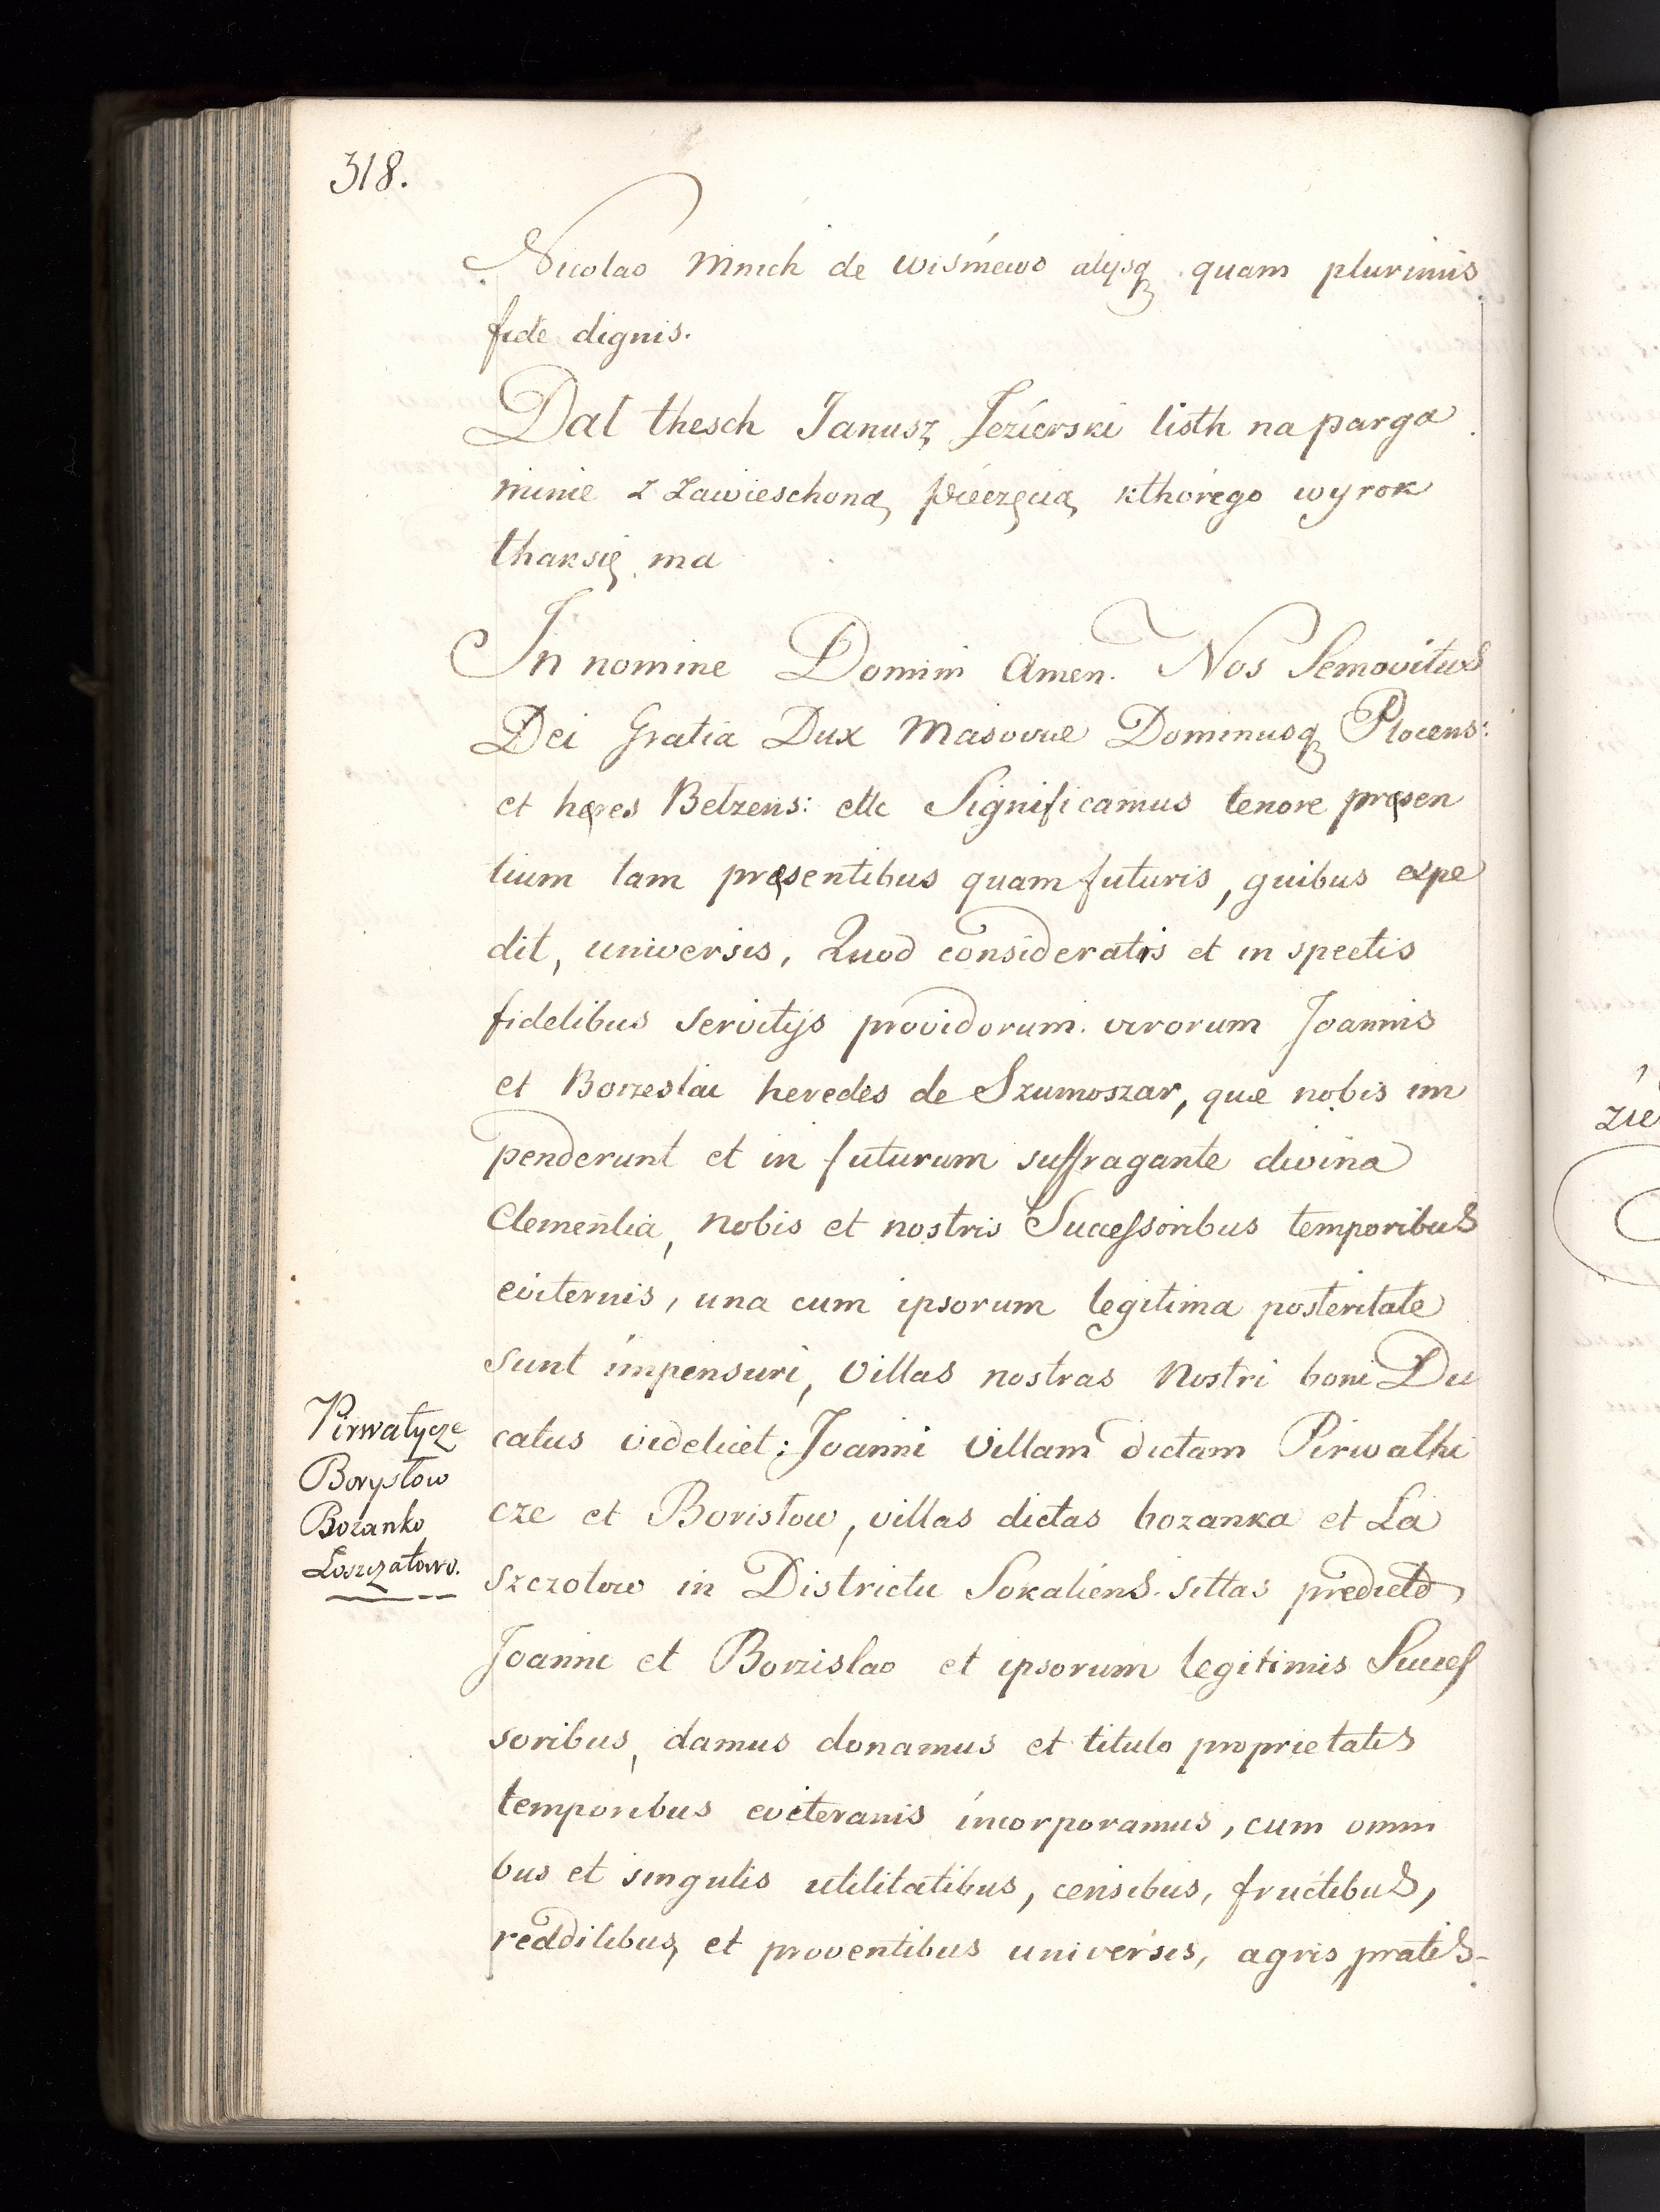 318.
Nicolao Mnich de Wiśniewo alijsq quam plurimis
fide dignis.
Dal thesch Janusz Jezierski listh na parga
minie z zawieschoną pieczęcią kthorego wyrok
thak się ma
In nomine Domini Amen. Nos Semovitus
Dei Gratia Dux Masovie Dominusq Plocens:
et hęres Betzens: etc Significamus tenore pręsen
tium tam pręsentibus quam futuris, quibus expe
dit, universis, Quod consideratis et in spectis
fidelibus servitijs providorum virorum Joannis
et Borzeslai heredes de Szumoszar, que nobis im
penderunt et in futurum suffragante divina
Clementia, nobis et nostris Successoribus temporibus
eviternis, una cum ipsorum legitima posteritate
sunt impensuri, Villas nostras Nostri boni Du
catus videlicet: Joanni Villam dictam Pirwathi
cze et Boristow, villas dictas bozanka et La
szczotow in Districtu Sokaliens. sittas predicto
Joanni et Borzislao et ipsorum legitimis Succes
soribus, damus donamus et titulo proprietatis
temporibus eviteranis incorporamus, cum omni
bus et singulis utilitatibus, censibus, fructibus,
redditibus, et proventibus universis, agris pratis-
Pirwatycze
Borystow
Bozanko
Loszczatowo.
zie